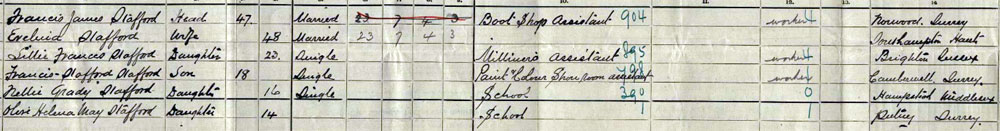 Francis James Stafford Head 47 Married 23 7 4 3 Boot Shop Assistant 904 worker 4 Norwood. Surrey
Stafford Wife 48 Married 23 7 4 3 Hants
Lillie Francis Stafford Daughter 23. Single Milliner's assistant 895 worker 4 Brighton Sussex
Francis Stafford Stafford Son 18 Single Paint & Colour Showroom assistant worker Camberwell Surrey.
Nellie Grady Stafford Daughter 16 Single School 390 0 Hampstead Middlesex
Olive Helena May Stafford Daughter 14 School 1 Putney Surrey